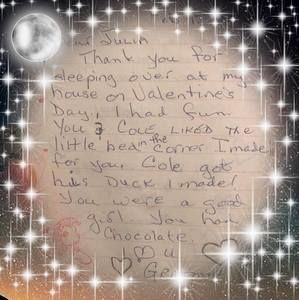 Julia
Thank you for
sleeping over at my
house on Valentine's
Day, I had fun.
You & Cole LIKED THE
little bed in the corner I made
for you. Cole got
his Duck I made!
You were a good
girl. You had
Chocolate.
♡ U